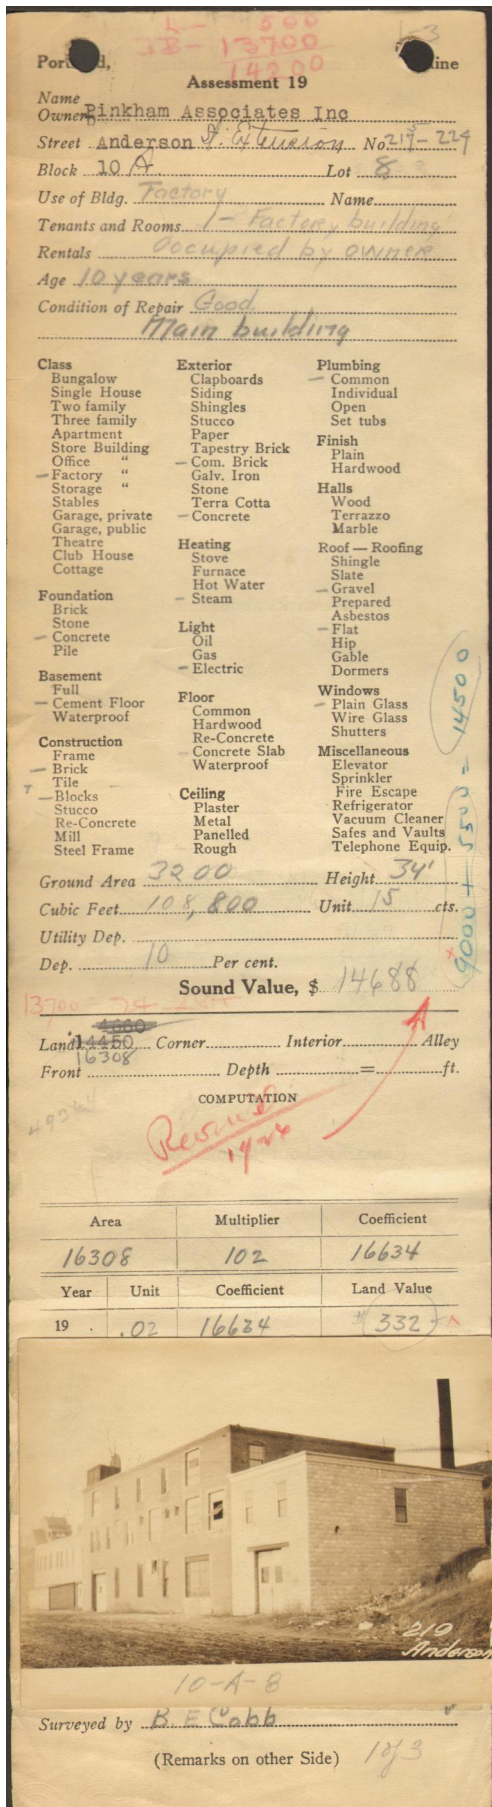 L - 500
1-3
IB - 13700
14200
Portland, Maine
Assessment 19
Name
Owner Pinkham Associates Inc
Street Anderson St. Extension No 217-229
Block 10 A. Lot 8
Use of Bldg. Factory Name
Tenants and Rooms 1 - Factory building
Rentals Occupied by owner
Age 10 years
Condition of Repair Good.
Main building
Class
Bungalow
Single House
Two family
Three family
Apartment
Store Building
Office "
- Factory "
Storage "
Stables
Garage, private
Garage, public
Theatre
Club House
Cottage
Foundation
Brick
Stone
- Concrete
Pile
Basement
Full
- Cement Floor
Waterproof
Construction
Frame
- Brick
Tile
- Blocks
Stucco
Re-Concrete
Mill
Steel Frame
Exterior
Clapboards
Siding
Shingles
Stucco
Paper
Tapestry Brick
- Com. Brick
Galv. Iron
Stone
Terra Cotta
- Concrete
Heating
Stove
Furnace
Hot Water
- Steam
Light
Oil
Gas
- Electric
Floor
Common
Hardwood
Re-Concrete
- Concrete Slab
Waterproof
Ceiling
Plaster
Metal
Panelled
Rough
Plumbing
- Common
Individual
Open
Set tubs
Finish
Plain
Hardwood
Halls
Wood
Terrazzo
Marble
Roof — Roofing
Shingle
Slate
- Gravel
Prepared
Asbestos
- Flat
Hip
Gable
Dormers
Windows
- Plain Glass
Wire Glass
Shutters
Miscellaneous
Elevator
Sprinkler
Fire Escape
Refrigerator
Vacuum Cleaner
Safes and Vaults
Telephone Equip.
9000 + 5500 = 14500
Ground Area 3200 Height 34'
Cubic Feet 108,800 Unit 15 cts.
Utility Dep.
Dep. 10 Per cent.
Sound Value, $ 14688
13700 - 24
4660
Land 14450 Corner Interior Alley
16308
Front Depth = ft.
COMPUTATION
Revised
1926
Area Multiplier Coefficient
16308 102 16634
Year Unit Coefficient Land Value
19 . .02 16634 $ 332
219
Anderson
10-A-8
Surveyed by B. E. Cobb
(Remarks on other Side) 1 of 3